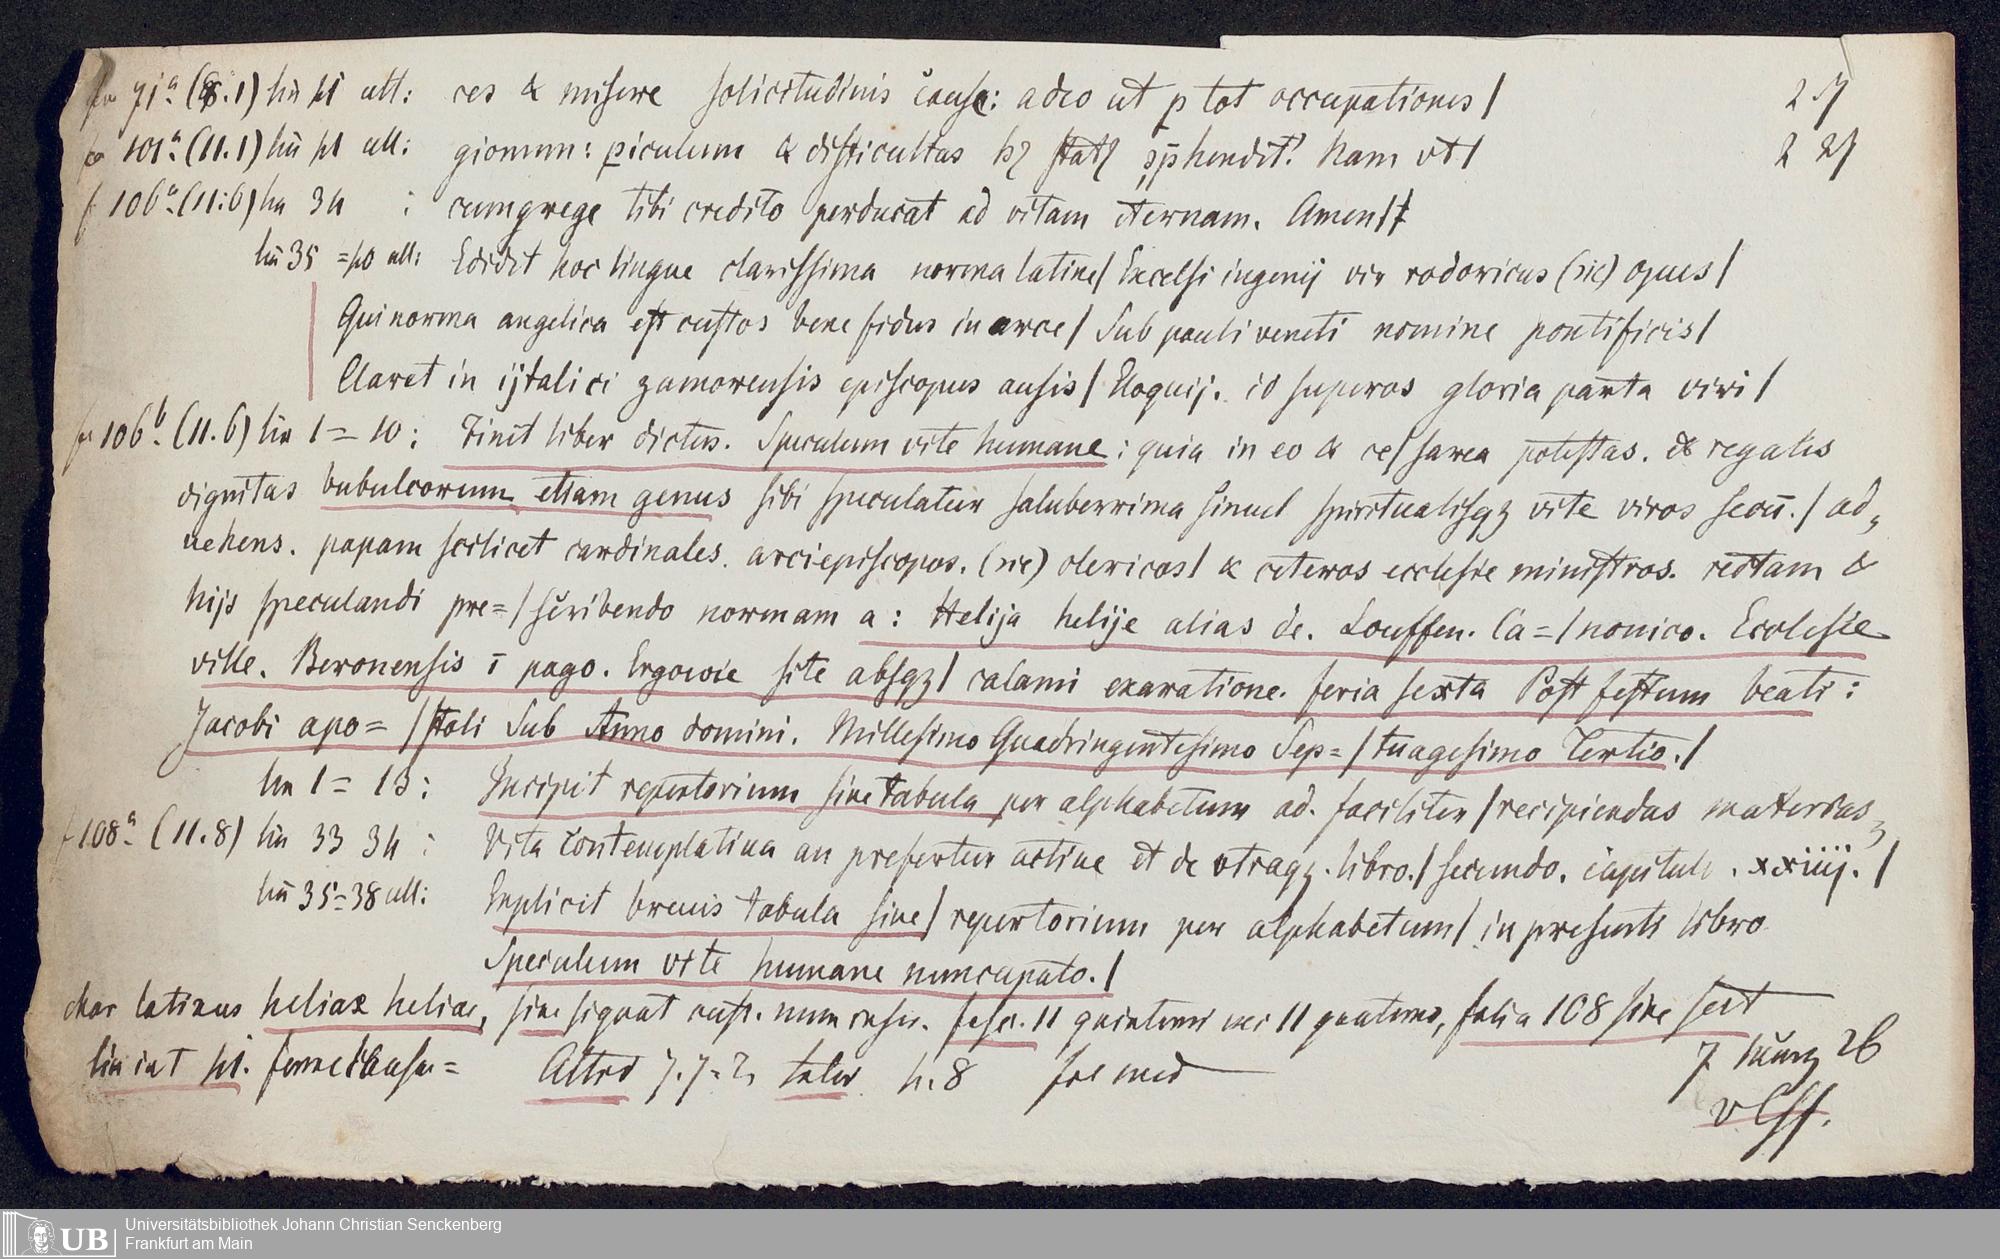 71a. (8.1) lin pl ult: ces & misere solicitudinis cause: adeo ut p tot occupationes/ 2 27
fo 101a. (11.1) lin pl ult: gionum: piculum & difficultas hȝ statȝ ꝯp̄hendit? Nam vt/ 2 27
f 106a. (11.6) lin 34 : cumgrege tibi credito perducat ad vitam eternam. Amen//
lin 35 =40 ult: Edidit hoc lingue clarissima norma latine/ Excelsi ingenij vir rodoricus (sic) opus/
Qui norma angelica est custos bene fidus in arce/ Sub pauli veneti nomine pontificis/
Claret in ijtalici zamorensis episcopus ausis/ Eloquij. id superos gloria parta viri/
fo 106b. (11.6) lin 1=10: Finit liber dictus. Speculum vite humane: quia in eo & ce/sarea potestas. & regalis
dignitas bubulcorum etiam genus sibi speculatur saluberrima simul spiritualisqȝ vite viros secū./ ad„
uehens. papam scilicet cardinales. arciepiscopos. (sic) clericos/ & ceteros ecclesie ministros. rectam &
hijs speculandi pre=/scribendo normam a: Helija helije alias de. Louffen. Ca=/nonico. Ecclesie
ville. Beronensis ī pago. Ergowie site absqȝ/ calami exaratione. feria sexta Post festum beati:
Jacobi apo=/stoli Sub Anno domini. Millesimo Quadringentesimo Sep=/tuagesimo Tertio./
lin 1=13: Incipit repertorium siue tabula per alphabetum ad. faciliter/recipiendas materias
f 108a. (11.8) lin 33 34: Vita contemplatiua an prefertur actiue et de vtraqȝ. libro./ secundo. capitulo. xxiiij./
lin 35=38 ult: Explicit breuis tabula siue/ repertorium per alphabetum/ in presenti libro
Speculum vite humane nuncupato./
char latinus heliae heliae, sine signat cust. num inser. fasc. 11 quinterni 11 folia 108 sine
lin int pl. Altes 7.7=2, taler h. 8
7 März 26